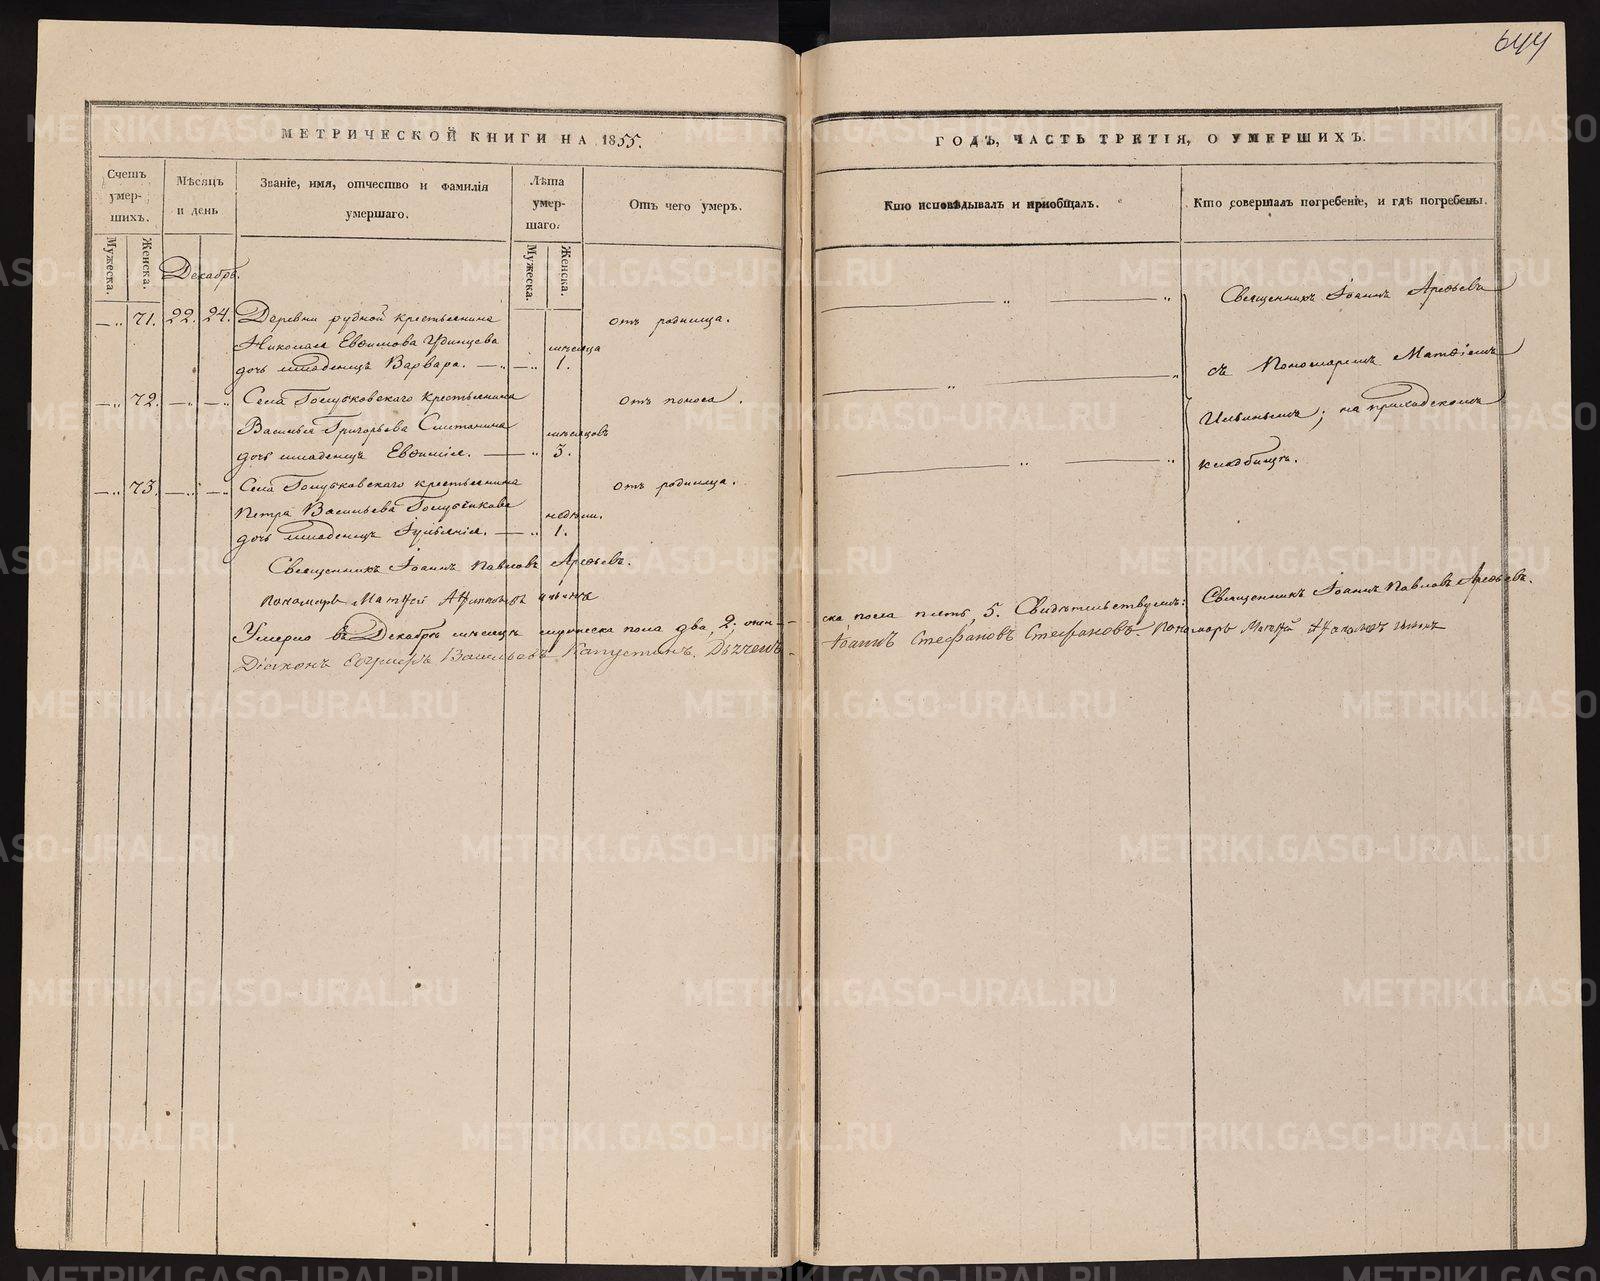 644
МЕТРИЧЕСКОЙ КНИГИ НА 1855.
ГОДЪ, ЧАСТЬ ТРЕТІЯ, О УМЕРШИХЪ.
Счетъ умер-шихъ.
Мужеска.
Женска.
Мѣсяцъ и день
Званіе, имя, отчество и фамилія умершаго.
Лѣта умер-шаго.
Мужеска.
Женска.
Отъ чего умеръ.
Кто исповѣдывалъ и пріобщалъ.
Кто совершалъ погребеніе, и гдѣ погребены.
Декабрь.
71. 22. 24. Деревни рудной крестьянина отъ родимца.
Николая Евѳимова Удинцева мѣсяца
дочь младенецъ Варвара. 1.
72. Села Голубковскаго крестьянина отъ поноса.
Василья Григорьева Сметанина мѣсяцовъ
дочь младенецъ Евѳимія. 3.
73. Села Голубковскаго крестьянина отъ родимца.
Петра Васильева Голубчикова недѣли.
дочь младенецъ Іуліанія. 1.
Священникъ Іоаннъ Арефьевъ
съ Пономаремъ Матѳіемъ
Ильинымъ; на приходскомъ
кладбищѣ.
Священникъ Іоаннъ Павловъ Арефьевъ.
Пономарь Матѳей Ильинъ
Умерло въ Декабрѣ мѣсяцѣ мужеска пола два, 2; жен-
ска пола пять, 5. Свидѣтельствуемъ: Священникъ Іоаннъ Павловъ Арефьевъ.
Діаконъ Васильевъ Капустинъ. Дьячекъ
Іоаннъ Стефановъ Стефановъ. Пономарь Матѳей Ильинъ
METRIKI.GASO-URAL.RU